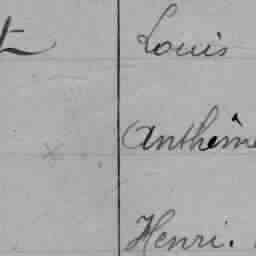 Louis
Anthême
Henri.